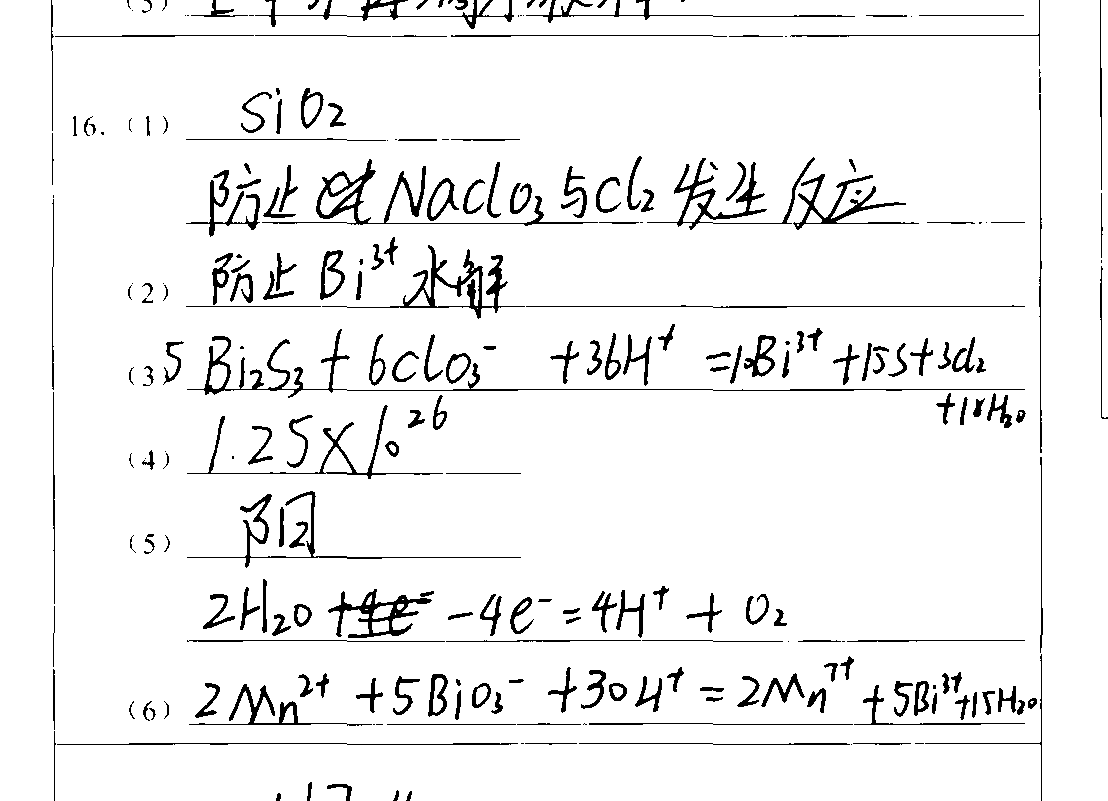 16.（1） SiO₂
防止 NaClO₃与Cl₂发生反应
（2） 防止Bi³⁺水解
（3） 5Bi₂S₃ + 6ClO₃⁻ + 36H⁺ = 10Bi³⁺ + 15S + 3Cl₂
+ 18H₂O
（4） 1.25×10²⁶
（5） 阳
2H₂O - 4e⁻ = 4H⁺ + O₂
（6） 2Mn²⁺ + 5BiO₃⁻ + 30H⁺ = 2Mn⁷⁺ + 5Bi³⁺ + 15H₂O